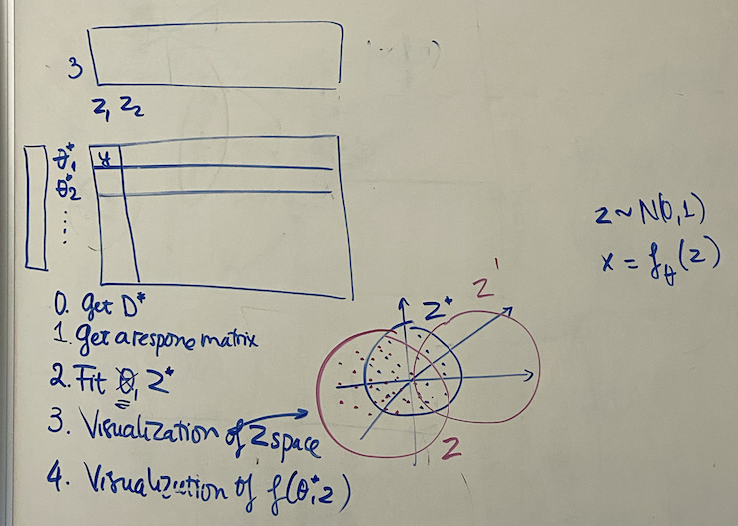 3
z₁ z₂
θ₁* y
θ₂*
⋮
0. Get D*
1. Get a respone matrix
2. Fit θ, Z*
3. Visualization of Z space
4. Visualization of f(θ*, z)
Z*
Z'
Z
z ~ N(0,1)
x = f_θ(z)